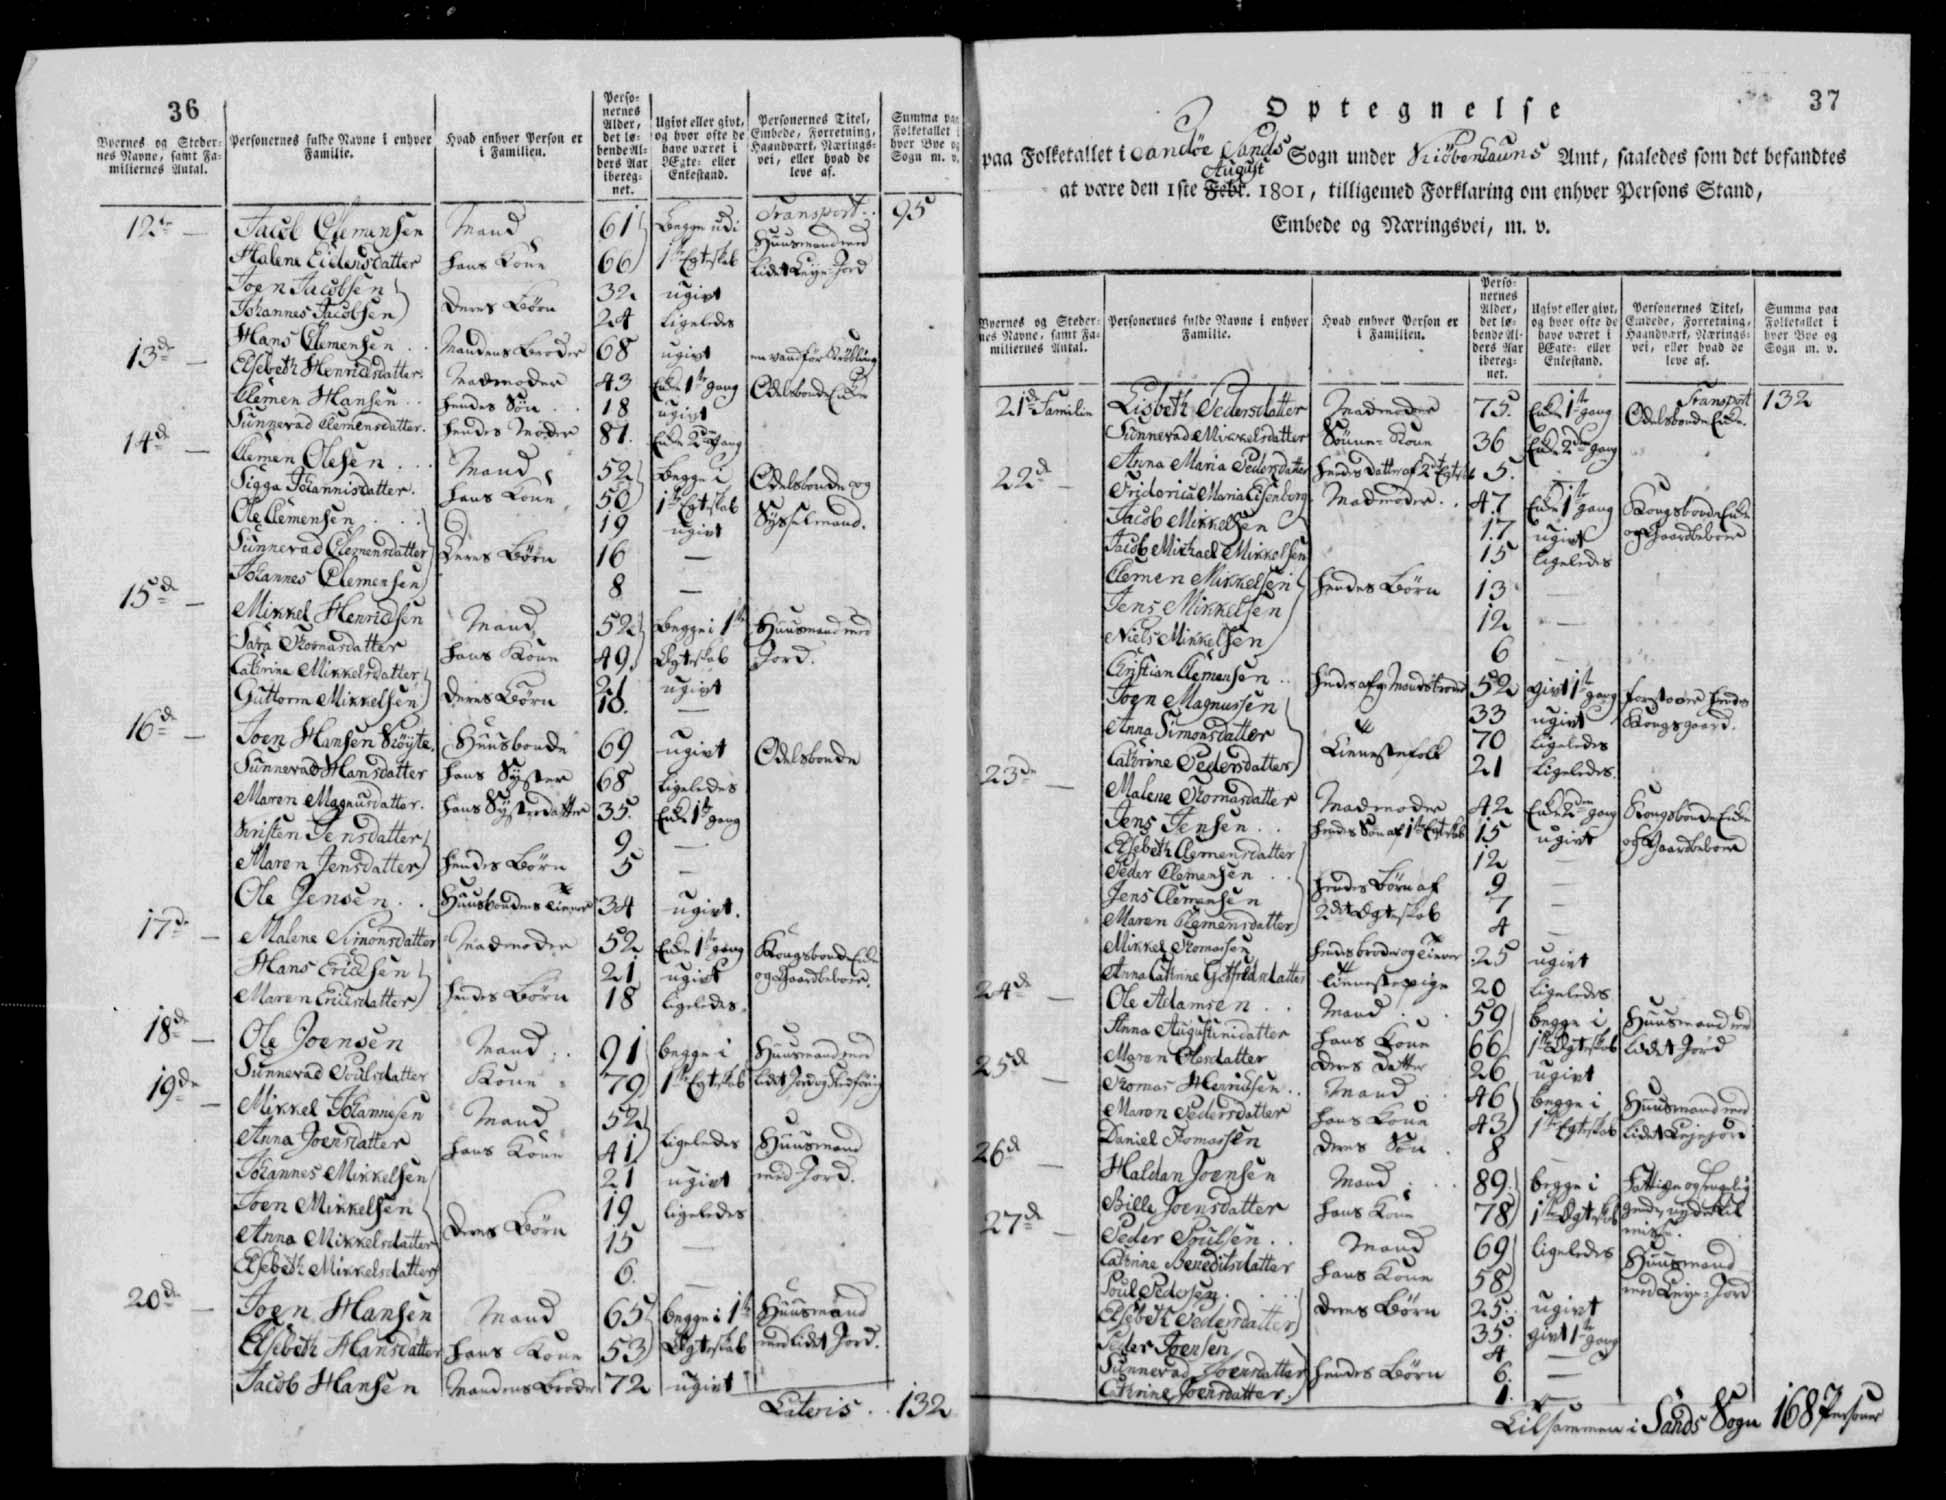 36
Byernes og Steder-
nes Navne, samt Fa-
miliernes Antal.
Personernes fulde Navne i enhver
Familie.
Hvad enhver Person er
i Familien.
Perso-
nernes
Alder,
det lø-
bende Al-
ders Aar
ibereg-
net.
Ugivt eller givt,
og hvor ofte de
have været i
Ægte- eller
Enkestand.
Personernes Titel,
Embede, Forretning,
Haandværk, Nærings-
vei, eller hvad de
leve af.
Summa paa
Folketallet i
hver Bye og
Sogn m. v.
Transport .. 95
12te — Jacob Clemensen Mand 61 begge udi Huusmand med
Malene Eidensdatter hans Kone 66 1ste Egteskab lidet Leye-Jord
Joen Jacobsen 32 ugivt
Johannes Jacobsen deres Børn 24 ligeledes
Hans Clemensen .. Mandens Broder 68 ugivt en vanfør Krøbling
13de — Elsebeth Henrichsdatter. Madmoder 43 Enke 1ste gang Odelsbonde Enke
Clemen Hansen .. hendes Søn .. 18 ugivt
Sunnevad Clemensdatter. hendes Moder 81. Enke 2den gang
14de — Clemen Olesen ... Mand 52 begge i Odelsbonde og
Sigga Johannisdatter. hans Kone 50 1ste Egteskab Sysselmand.
Ole Clemensen ... 19 ugivt
Sunnevad Clemensdatter deres Børn 16 —
Johannes Clemensen 8 —
15de — Mikkel Henricksen Mand 52 begge i 1ste Huusmand med
Sara Thomasdatter hans Kone 49. Ægteskab Jord.
Cathrine Mikkelsdatter 21 ugivt
Guttorm Mikkelsen deres Børn 18. —
16de — Joen Hansen Huusbonde 69 ugivt Odelsbonde
Sunnevad Hansdatter hans Syster 68 ligeledes
Maren Magnusdatter. hans Systerdatter 35. Enke 1ste gang
Kristen Jensdatter 9 —
Maren Jensdatter hendes Børn 5 —
Ole Jensen .. Huusbondens Tiener 34 ugivt.
17de — Malene Simonsdatter Madmoder 52 Enke 1ste gang Kongsbonde Enke
Hans Ericksen 21 ugivt og Gaardbeboer.
Maren Ericksdatter hendes Børn 18 ligeledes.
18de — Ole Joensen Mand .. 91 begge i Huusmand med
Sunnevad Poulsdatter Kone 79 1ste Egteskab lidet Jord og
19de — Mikkel Johannesen Mand 52
Anna Joensdatter hans Kone 41 ligeledes Huusmand
Johannes Mikkelsen 21 ugivt med Jord.
Joen Mikkelsen 19 ligeledes
Anna Mikkelsdatter deres Børn 15 —
Elsebeth Mikkelsdatter 6. —
20de — Joen Hansen Mand 65 begge i 1ste Huusmand
Elsebeth Hansdatter hans Kone 53 Ægteskab med lidet Jord.
Jacob Hansen Mandens Broder 72 ugivt
Lateris .. 132
37
Optegnelse
paa Folketallet i Sandøe Sands Sogn under Kiøbenhauns Amt, saaledes som det befandtes
August
at være den 1ste Febr. 1801, tilligemed Forklaring om enhver Persons Stand,
Embede og Næringsvei, m. v.
Byernes og Steder-
nes Navne, samt Fa-
miliernes Antal.
Personernes fulde Navne i enhver
Familie.
Hvad enhver Person er
i Familien.
Perso-
nernes
Alder,
det lø-
bende Al-
ders Aar
ibereg-
net.
Ugivt eller givt,
og hvor ofte de
have været i
Ægte- eller
Enkestand.
Personernes Titel,
Embede, Forretning,
Haandværk, Nærings-
vei, eller hvad de
leve af.
Summa paa
Folketallet i
hver Bye og
Sogn m. v.
Transport 132
21de Familie Lisbeth Pedersdatter Madmoder 75. Enke 1ste gang Odelsbonde Enke.
Sunnevad Mikkelsdatter Sønne-Kone 36 Enke 2den gang
Anna Maria Pedersdatter hendes datter af 2det Egteskab 5.
22de — Fridorica Maria Eisenberg Madmoder .. 47. Enke 1ste gang Kongsbonde Enke
Jacob Mikkelsen 17 ugivt og Gaardbeboer
Jacob Michael Mikkelsen 15 ligeledes
Clemen Mikkelsen hendes Børn 13 —
Jens Mikkelsen 12 —
Niels Mikkelsen 6 —
Christian Clemensen .. hendes afg: Mands broder 52 givt 1ste gang forestaaer hendes
Joen Magnussen 33 ugivt Kongsgaard.
Anna Simonsdatter 70 ligeledes
Cathrine Pedersdatter Tienestefolk 21 ligeledes.
23de — Malene Thomasdatter Madmoder 42 Enke 2den gang Kongsbonde Enke
Jens Jensen .. hendes Søn af 1ste Egteskab 15 ugivt og Gaardbeboer
Elsebeth Clemensdatter 12 —
Peder Clemensen .. hendes Børn af 9 —
Jens Clemensen 2det Ægteskab 7 —
Maren Clemensdatter 4 —
Mikkel Thomassen hendes broder og Tiener 25 ugivt
Anna Cathrine Gotfredsdatter tienestepige 20 ligeledes
24de — Ole Adamsen .. Mand .. 59 begge i Huusmand med
Anna Augustinidatter hans Kone 66 1ste Ægteskab lidet Jord
Maren Olesdatter deres datter 26 ugivt
25de — Thomas Henriksen .. Mand .. 46 begge i Huusmand med
Maren Pedersdatter hans Kone 43 1ste Egteskab lidet Leyejord
Daniel Thomassen deres Søn . 8 —
26de — Haldan Joensen Mand ... 89. begge i Fattige og
Bille Joensdatter hans Kone 78 1ste Ægteskab
27de — Peder Poulsen .. Mand 69 ligeledes Huusmand
Cathrine Beneditsdatter hans Kone 58 med Leye-Jord
Poul Pedersen ... deres Børn 25. ugivt
Elsebeth Pedersdatter 35. givt 1ste gang
Peder Joensen 4 —
Sunnevad Joensdatter hendes Børn 6. —
Cathrine Joensdatter. 1. —
Tilsammen i Sands Sogn 168 Personer